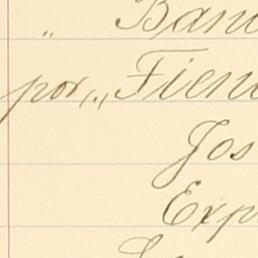 „ Band
por „ Fien
Jos
Exp